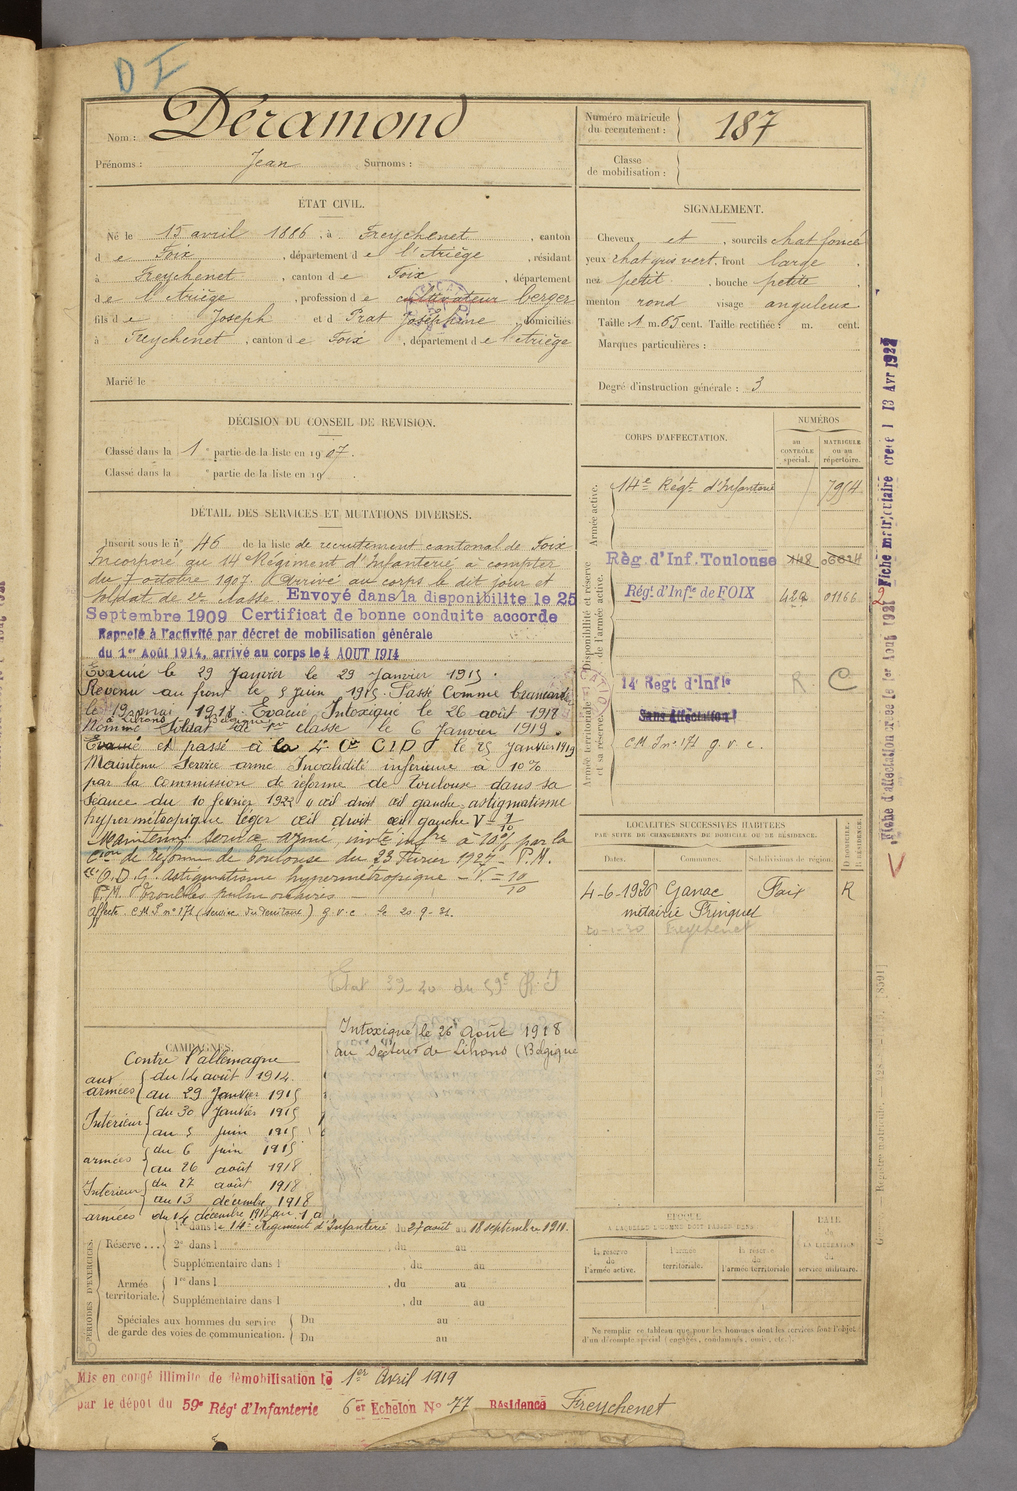 D I
Nom : Déramond
Prénoms : Jean Surnoms :
Numéro matricule du recrutement : 187
Classe de mobilisation :
ÉTAT CIVIL.
Né le 15 avril 1886, à Freychenet, canton
d e Foix, département d e l'Ariège, résidant
à Freychenet, canton d e Foix, département
d e l'Ariège, profession d e cultivateur berger
fils d e Joseph et d Prat Joséphine, domiciliés
à Freychenet, canton d e Foix, département d e l'Ariège
Marié le
SIGNALEMENT.
Cheveux et, sourcils chat foncé
yeux chat gris vert, front large
nez petit, bouche petite
menton rond visage anguleux
Taille : 1 m. 65 cent. Taille rectifiée : m. cent.
Marques particulières :
Degré d'instruction générale : 3
DÉCISION DU CONSEIL DE REVISION.
Classé dans la 1e partie de la liste en 1907.
Classé dans la e partie de la liste en 19
DÉTAIL DES SERVICES ET MUTATIONS DIVERSES.
Inscrit sous le n° 46 de la liste de recrutement cantonal de Foix
Incorporé au 14 Régiment d'Infanterie à compter
du 7 octobre 1907. Arrivé au corps le dit jour et
soldat de 2e classe. Envoyé dans la disponibilite le 25
Septembre 1909 Certificat de bonne conduite accorde
Rappelé à l'activité par décret de mobilisation générale
du 1er Août 1914, arrivé au corps le 4 AOUT 1914
Évacué le 29 Janvier le 29 Janvier 1915.
Revenu au front le 5 juin 1915. Passé Comme brancardier
le 19 mai 1918. Évacué Intoxiqué le 26 août 1918
à Lihons Belgique
Nommé Soldat de 1re classe le 6 Janvier 1919.
Évacué et passé à la 4e Cie C I D J le 25 janvier 1919
Maintenu Service armé Invalidité inférieure à 10%
par la Commission de réforme de Toulouse dans sa
séance du 10 février 1922 oeil droit oeil gauche, astigmatisme
hypermétropique léger oeil droit oeil gauche V = 7/10
Maintenu service armé, invté infre à 10% par la
Cion de réforme de Toulouse du 23 Février 1927. P.M.
"O.D.G. astigmatisme hypermétropique - V = 10/10
P.M. Troubles pulmonaires -
Affecté C M I n° 171 (Service du Territoire) g.v.c. le 20.9.31.
Etat 39-20 du 59e R.I
CORPS D'AFFECTATION.
NUMÉROS
au CONTRÔLE spécial.
MATRICULE ou au répertoire.
Armée active.
14e Régt d'Infanterie / 7954
Disponibilité et réserve de l'armée active.
Règ. d'Inf. Toulouse 148 06024
Régt d'Infie de FOIX 422 01166
Armée territoriale et sa réserve.
14 Regt d'Infie R C
Sans Affectation
C M I n° 171 g.v.c.
LOCALITÉS SUCCESSIVES HABITÉES
PAR SUITE DE CHANGEMENTS DE DOMICILE OU DE RÉSIDENCE.
Dates. Communes. Subdivisions de région. D DOMICILE. R RÉSIDENCE.
4-6-1926 Ganac Foix R
métairie Pringuel
Freychenet
CAMPAGNES.
Contre l'allemagne
aux armées { du 14 août 1914.
au 29 Janvier 1915
Intérieur { du 30 Janvier 1915
au 5 juin 1915
armées { du 6 juin 1915
au 26 août 1918
Intérieur { du 27 août 1918
au 13 décembre 1918
armées du 14 décembre 1918 au
Intoxiqué le 26 Août 1918
au secteur de Lihons (Belgique
PÉRIODES D'EXERCICES.
Réserve ... 1re dans le 14e Régiment d'Infanterie du 27 août au 18 septembre 1911.
2e dans l , du au
Supplémentaire dans l , du au
Armée territoriale. 1re dans l , du au
Supplémentaire dans l , du au
Spéciales aux hommes du service de garde des voies de communication. Du au
Du au
ÉPOQUE
la réserve de l'armée active.
l'armée territoriale.
la réserve de l'armée territoriale
DATE de LA LIBÉRATION du service militaire.
Ne remplir ce tableau que pour les hommes dont les services font l'objet
d'un décompte spécial (engagés, condamnés, omis, etc.).
Mis en congé illimité de démobilisation le 1er Avril 1919
par le dépot du 59e Régt d'Infanterie 6er Echelon N° 77 Résidence Freychenet
Fiche matriculaire créée 13 Avr
Fiche d'affectation créée le 1er Août